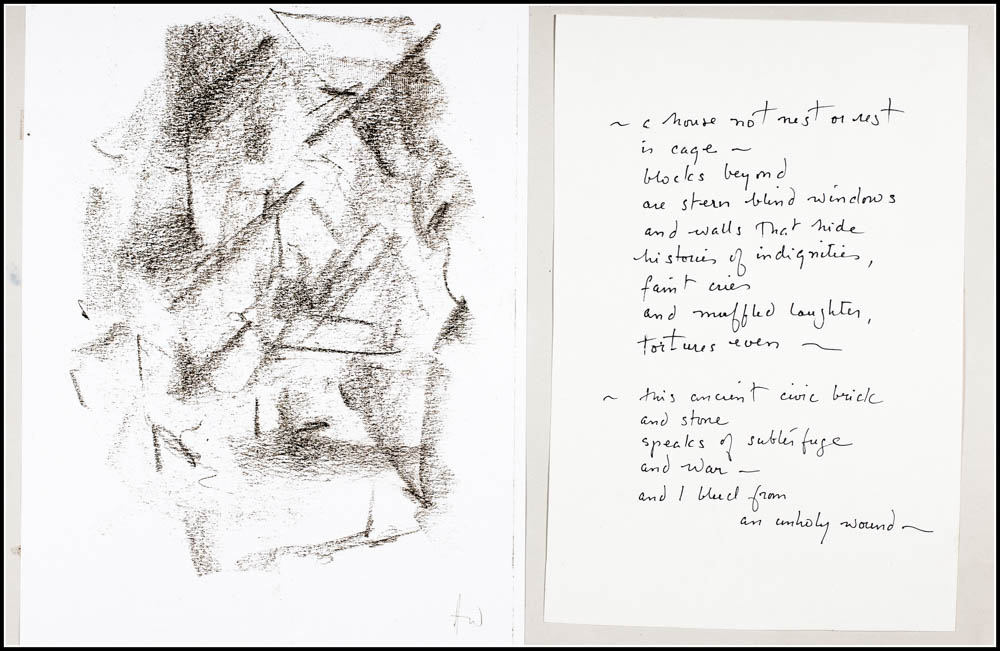 ~ a house not nest or rest
is cage ~
blocks beyond
are stern blind windows
and walls that hide
histories of indignities,
faint cries
and muffled laughter,
tortures even ~
~ this ancient civic brick
and stone
speaks of subterfuge
and war ~
and I bleed from
an unholy wound ~
AW